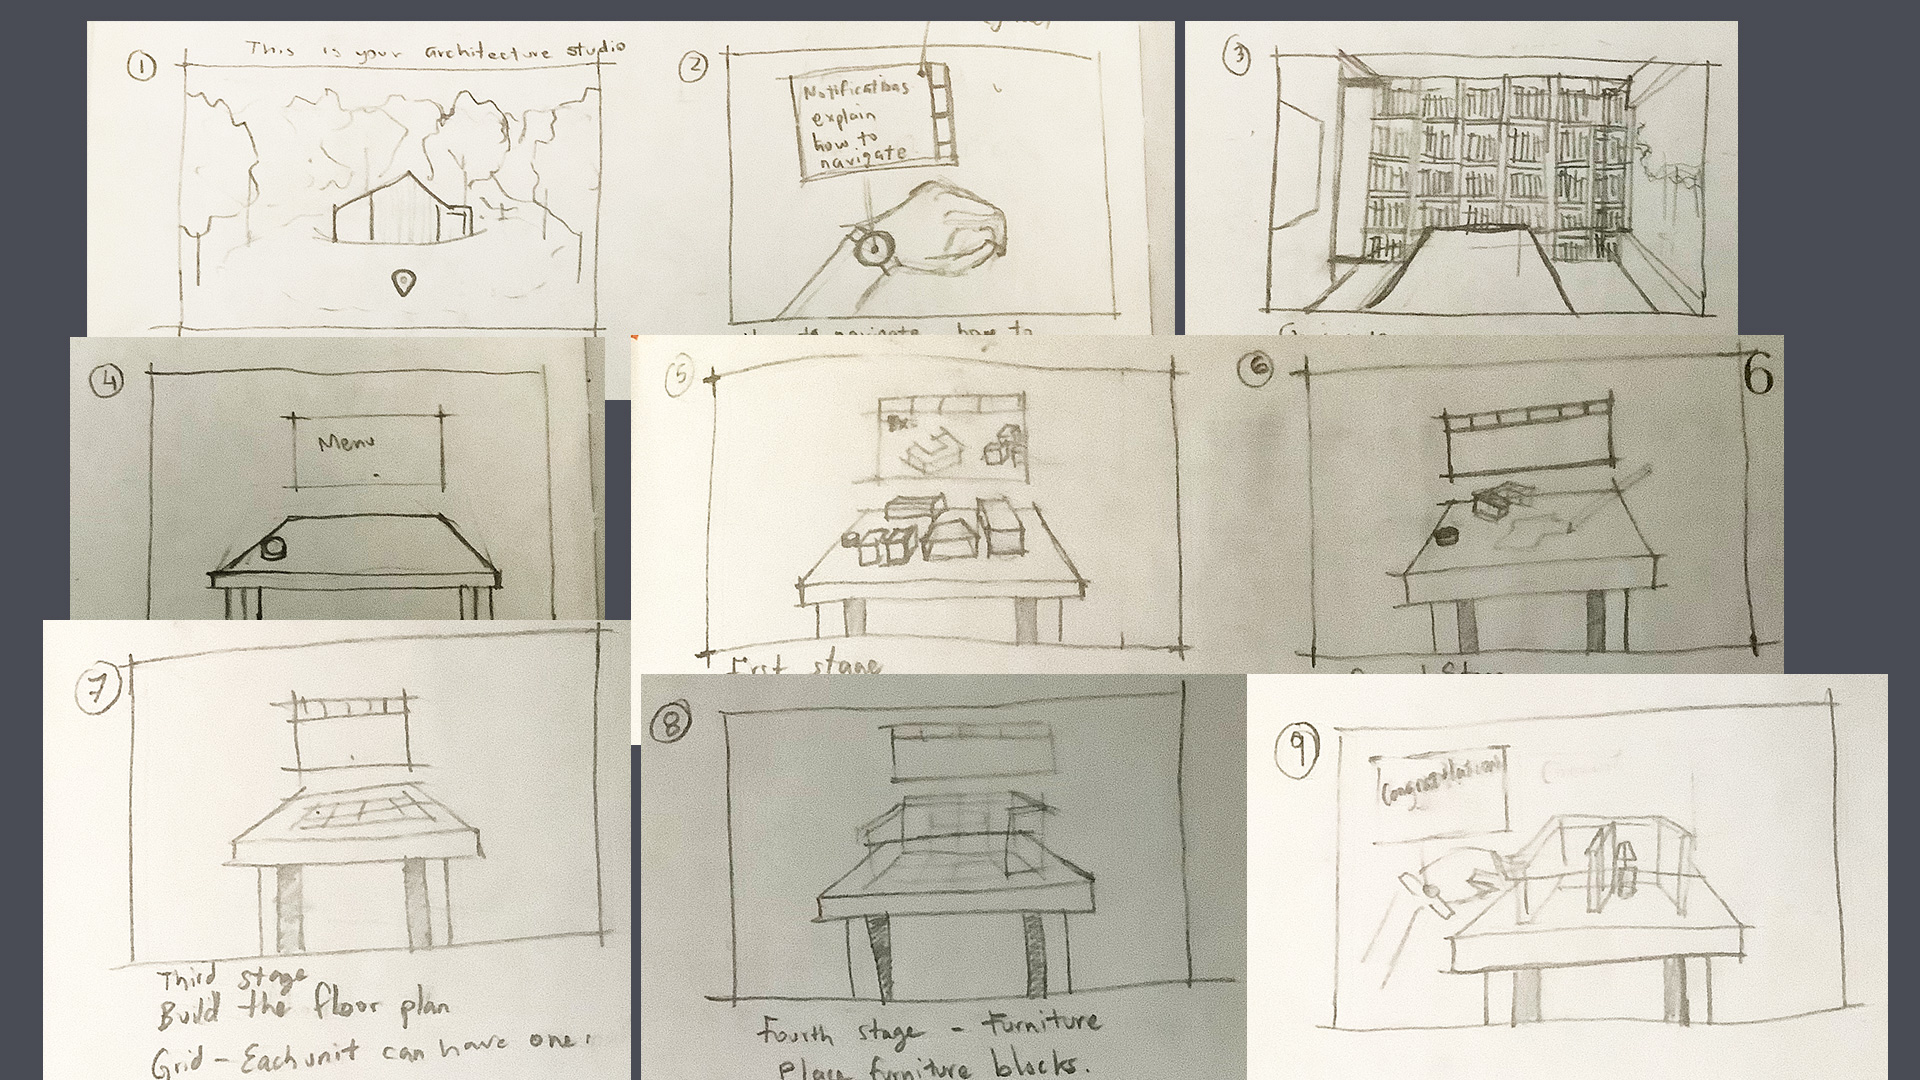 1
This is your architecture studio
2
Notifications
explain
how to
navigate
to navigate how to
3
4
Menu
5
First stage
6
6
7
Third stage
Build the floor plan
Grid - Each unit can have one
8
Fourth stage - Furniture
Place furniture blocks.
9
Congratulations